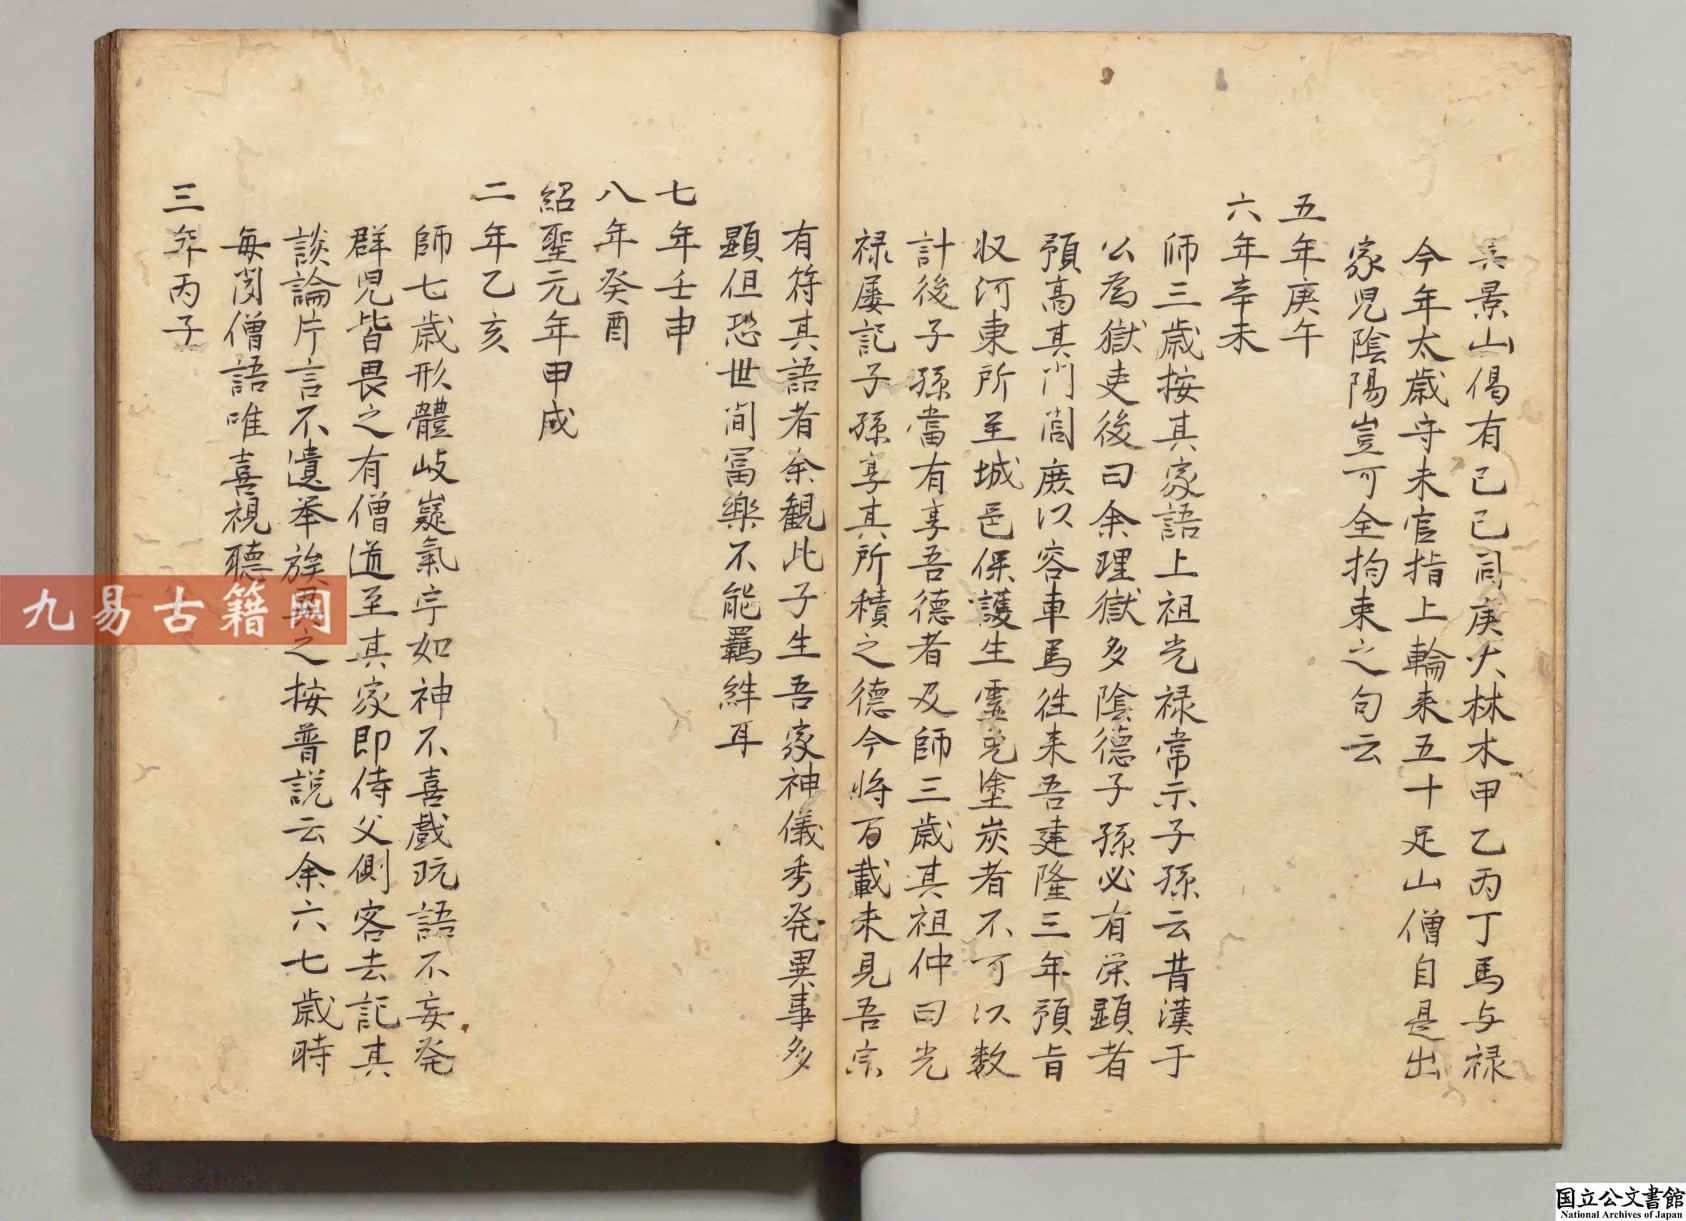 景山偈有己巳同庚大林木甲乙丙丁馬与禄
今年太歳守未官指上輪来五十足山僧自是出
家児陰陽豈可全拘束之句云
五年庚午
六年辛未
師三歳按其家語上祖光禄常示子孫云昔漢于
公為獄吏後曰余理獄多陰德子孫必有栄顕者
預高其門閭庶以容車馬徃来吾建隆三年預旨
収河東所至城邑保護生霊免塗炭者不可以数
計後子孫當有享吾德者及師三歳其祖仲曰光
禄屡記子孫享其所積之德今将百載未見吾宗
有符其語者余観此子生吾家神儀秀発異事多
顕但恐世間冨樂不能羈絆耳
七年壬申
八年癸酉
紹聖元年甲戌
二年乙亥
師七歳形體岐嶷氣宇如神不喜戲玩語不妄発
群児皆畏之有僧道至其家即侍父側客去記其
談論片言不遺举族異之按普説云余六七歳時
每閲僧語唯喜視聴
三年丙子
九易古籍网
国立公文書館
National Archives of Japan